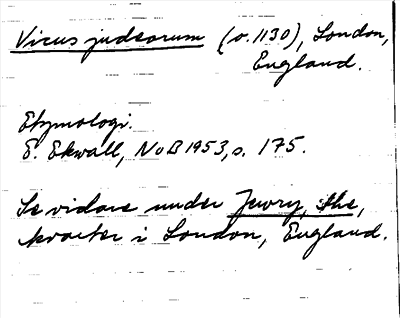 Vicus judeorum (o. 1130), London,
England.
Etymologi.
E. Ekwall, NoB 1953, s. 175.
Se vidare under Jewry, the,
kvarter i London, England.